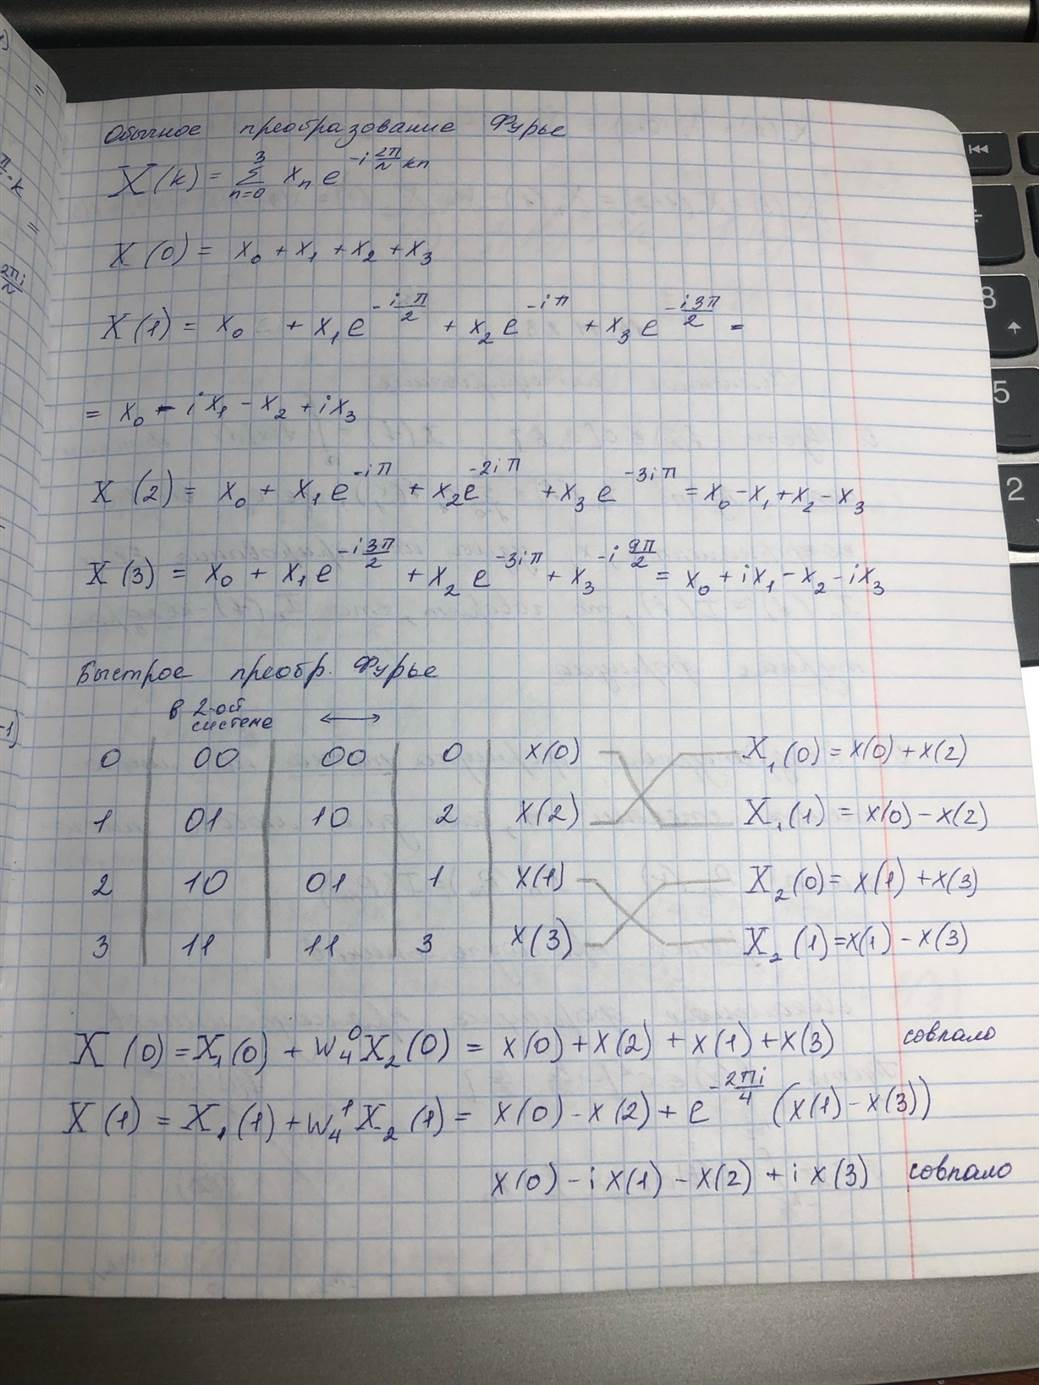 Обычное преобразование Фурье
X(k) = Σ_{n=0}^{3} x_n e^{-i 2π/N kn}
X(0) = x_0 + x_1 + x_2 + x_3
X(1) = x_0 + x_1 e^{-iπ/2} + x_2 e^{-iπ} + x_3 e^{-i3π/2} =
= x_0 - ix_1 - x_2 + ix_3
X(2) = x_0 + x_1 e^{-iπ} + x_2 e^{-2iπ} + x_3 e^{-3iπ} = x_0 - x_1 + x_2 - x_3
X(3) = x_0 + x_1 e^{-i3π/2} + x_2 e^{-3iπ} + x_3^{-i 9π/2} = x_0 + ix_1 - x_2 - ix_3
Быстрое преобр. Фурье
в 2-ой
системе ↔
0 00 00 0 x(0) X_1(0) = x(0) + x(2)
1 01 10 2 x(2) X_1(1) = x(0) - x(2)
2 10 01 1 x(1) X_2(0) = x(1) + x(3)
3 11 11 3 x(3) X_2(1) = x(1) - x(3)
X(0) = X_1(0) + W_4^0 X_2(0) = x(0) + x(2) + x(1) + x(3) совпало
X(1) = X_1(1) + W_4^1 X_2(1) = x(0) - x(2) + e^{-2πi/4} (x(1) - x(3))
x(0) - i x(1) - x(2) + i x(3) совпало
8
5
2